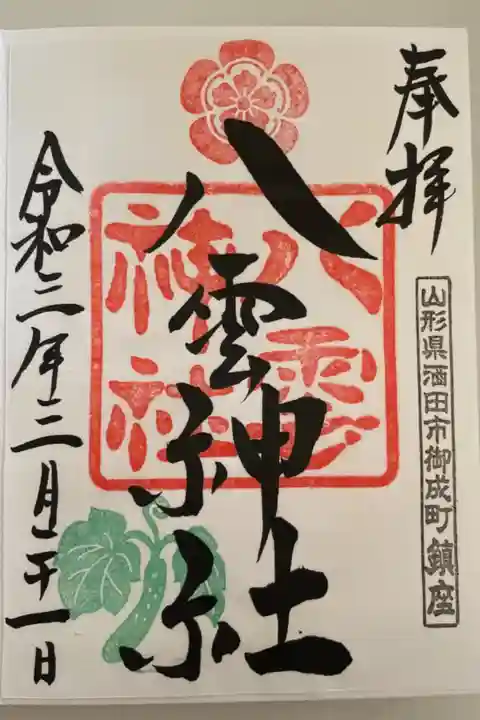 奉拝
山形県酒田市御成町鎮座
八雲神社
八雲
神社
令和三年二月二十一日